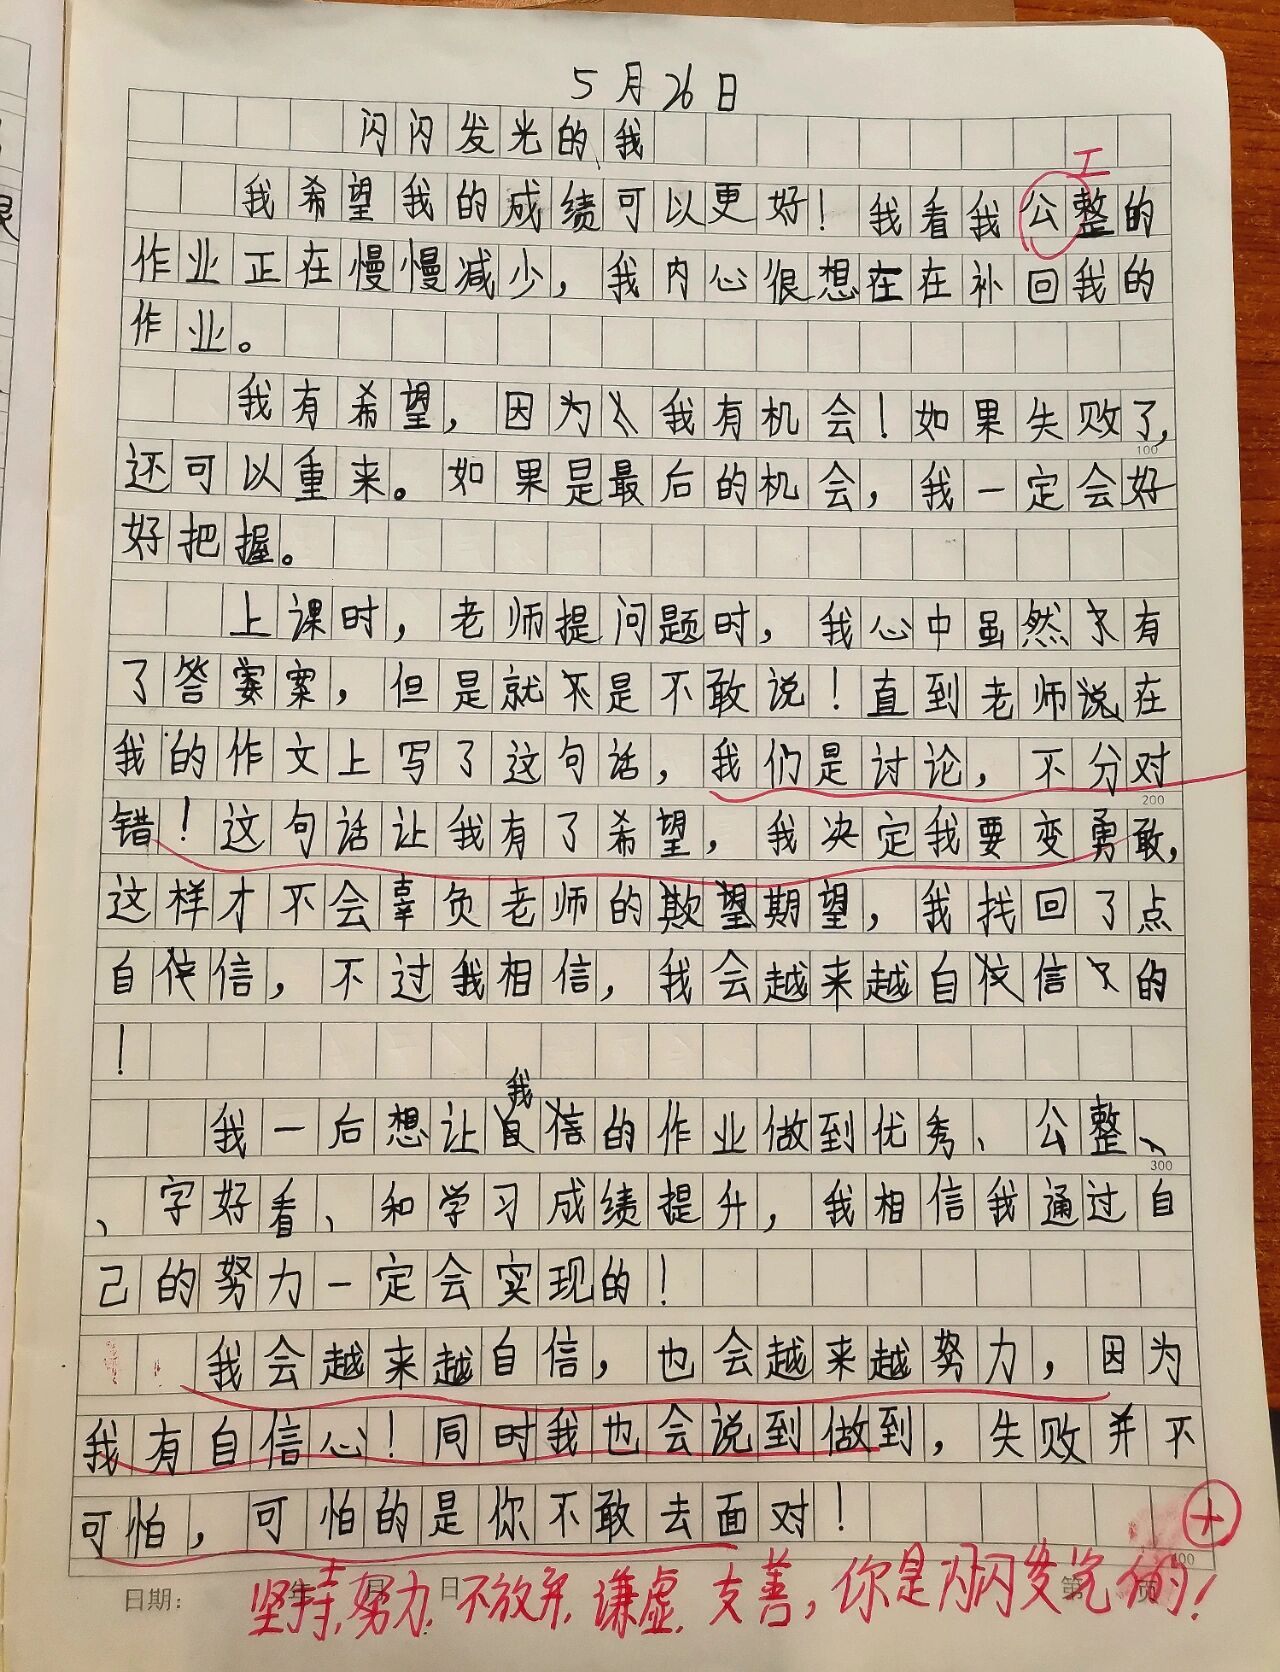 5月26日
闪闪发光的我
工
我希望我的成绩可以更好！我看我公整的
作业正在慢慢减少，我内心很想在在补回我的
作业。
我有希望，因为我有机会！如果失败了，
100
还可以重来。如果是最后的机会，我一定会好
好把握。
上课时，老师提问题时，我心中虽然有
了答案案，但是就不是不敢说！直到老师说在
我的作文上写了这句话，我们是讨论，不分对
200
错！这句话让我有了希望，我决定我要变勇敢，
这样才不会辜负老师的欺望期望，我找回了点
自信，不过我相信，我会越来越自信的
！
我
我一后想让自信的作业做到优秀、公整、
300
、字好看、和学习成绩提升，我相信我通过自
己的努力一定会实现的！
我会越来越自信，也会越来越努力，因为
我有自信心！同时我也会说到做到，失败并不
可怕，可怕的是你不敢去面对！
400
日期： 年 月 日 第 页
坚持，努力，不放弃，谦虚，友善，你是闪闪发光的！